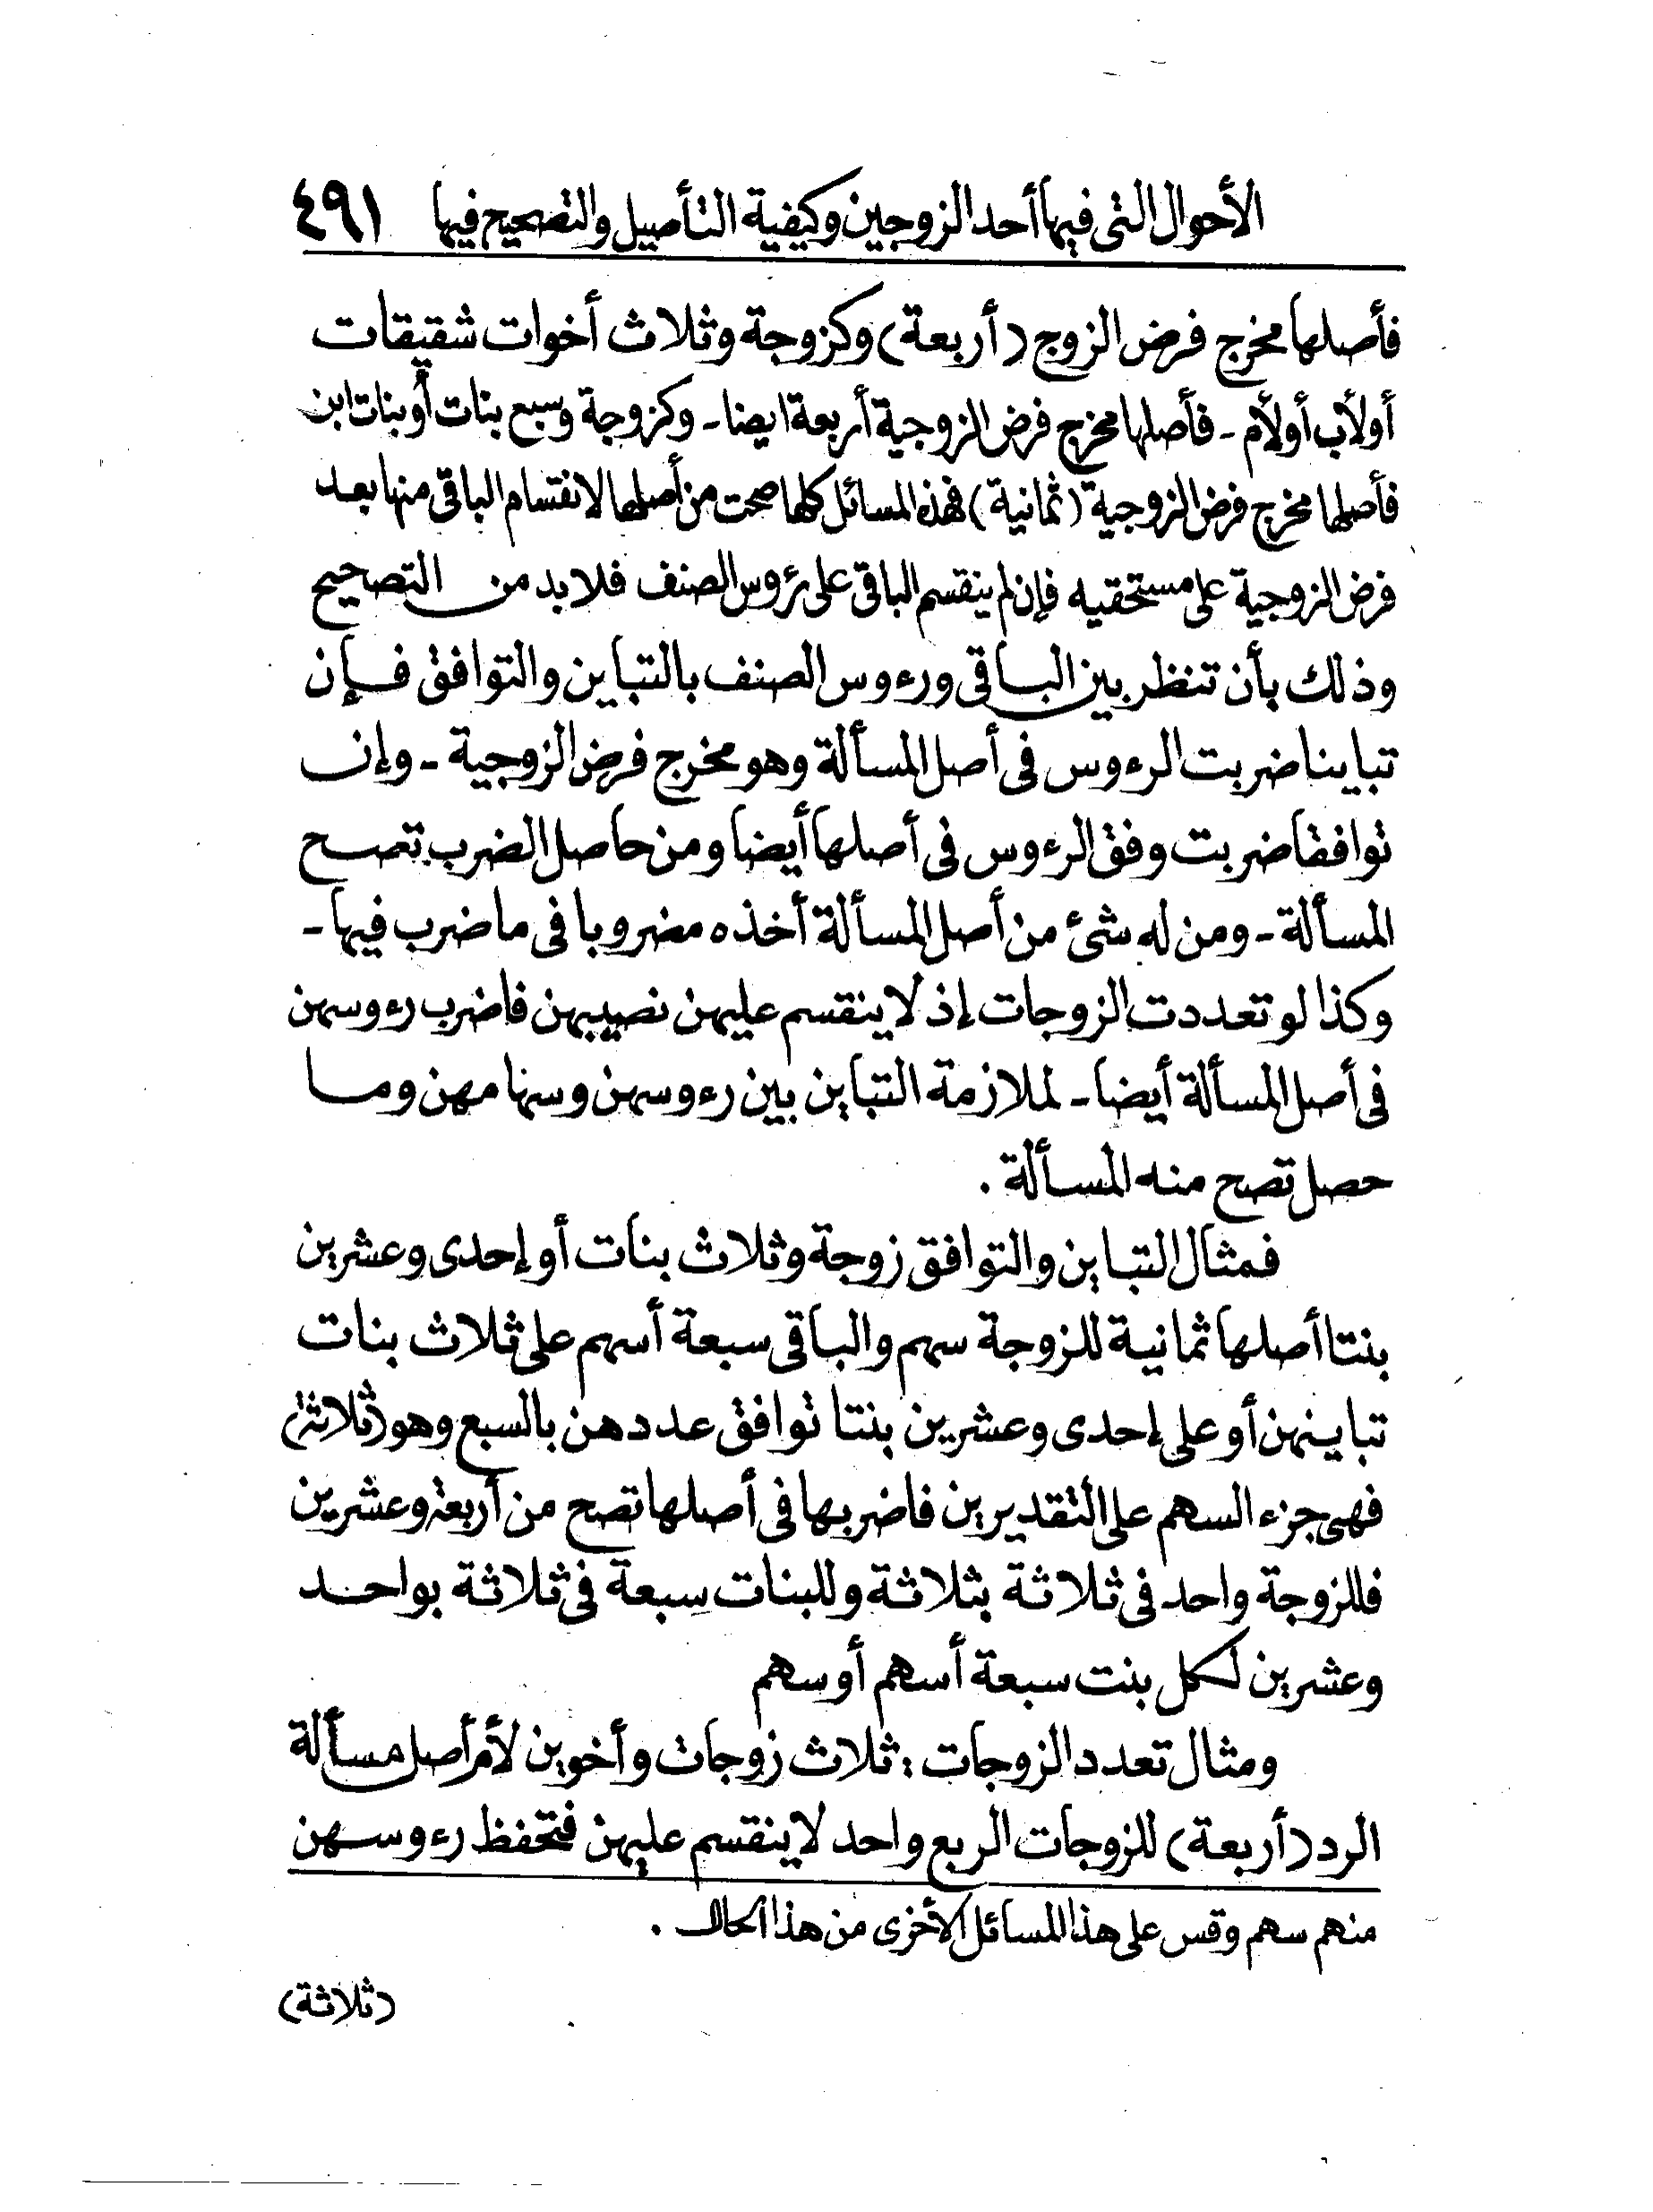 الأحوال التى فيها أحد الزوجين وكيفية التأصيل والتصحيح فيها ٤٩١
فأصلها مخرج فرض الزوج (أربعة) وكزوجة وثلاث أخوات شقيقات
أولأب أولأم ـ فأصلها مخرج فرض الزوجية أربعة ايضا ـ وكزوجة وسبع بنات أو بنات ابن
فأصلها مخرج فرض الزوجية (ثمانية) فهذه المسائل كلها صحت من أصلها لانقسام الباقى منها بعد
فرض الزوجية على مستحقيه فإن لم ينقسم الباقى على رؤوس الصنف فلا بد من التصحيح
وذلك بأن تنظر بين الباقى ورءوس الصنف بالتباين والتوافق فإن
تباينا ضربت الرءوس فى أصل المسألة وهو مخرج فرض الزوجية ـ وإن
توافقا ضربت وفق الرءوس فى أصلها أيضا ومن حاصل الضرب تصح
المسألة ـ ومن له شئ من أصل المسألة أخذه مضروبا فى ما ضرب فيها ـ
وكذا لو تعددت الزوجات إذ لا ينقسم عليهن نصيبهن فاضرب رءوسهن
فى أصل المسألة أيضا ـ لملازمة التباين بين رءوسهن وسهامهن وما
حصل تصح منه المسألة .
فمثال التباين والتوافق زوجة وثلاث بنات أو إحدى وعشرين
بنتا أصلها ثمانية للزوجة سهم والباقى سبعة أسهم على ثلاث بنات
تباينهن أو على إحدى وعشرين بنتا توافق عددهن بالسبع وهو (ثلاثة)
فهى جزء السهم على التقديرين فاضربها فى أصلها تصح من أربعة وعشرين
فللزوجة واحد فى ثلاثة بثلاثة وللبنات سبعة فى ثلاثة بواحد
وعشرين لكل بنت سبعة أسهم أو سهم
ومثال تعدد الزوجات : ثلاث زوجات وأخوين لأم أصل مسألة
الرد (أربعة) للزوجات الربع واحد لا ينقسم عليهن فتحفظ رءوسهن
منهم سهم وقس على هذا المسائل الأخرى من هذا الحال .
(ثلاثة)